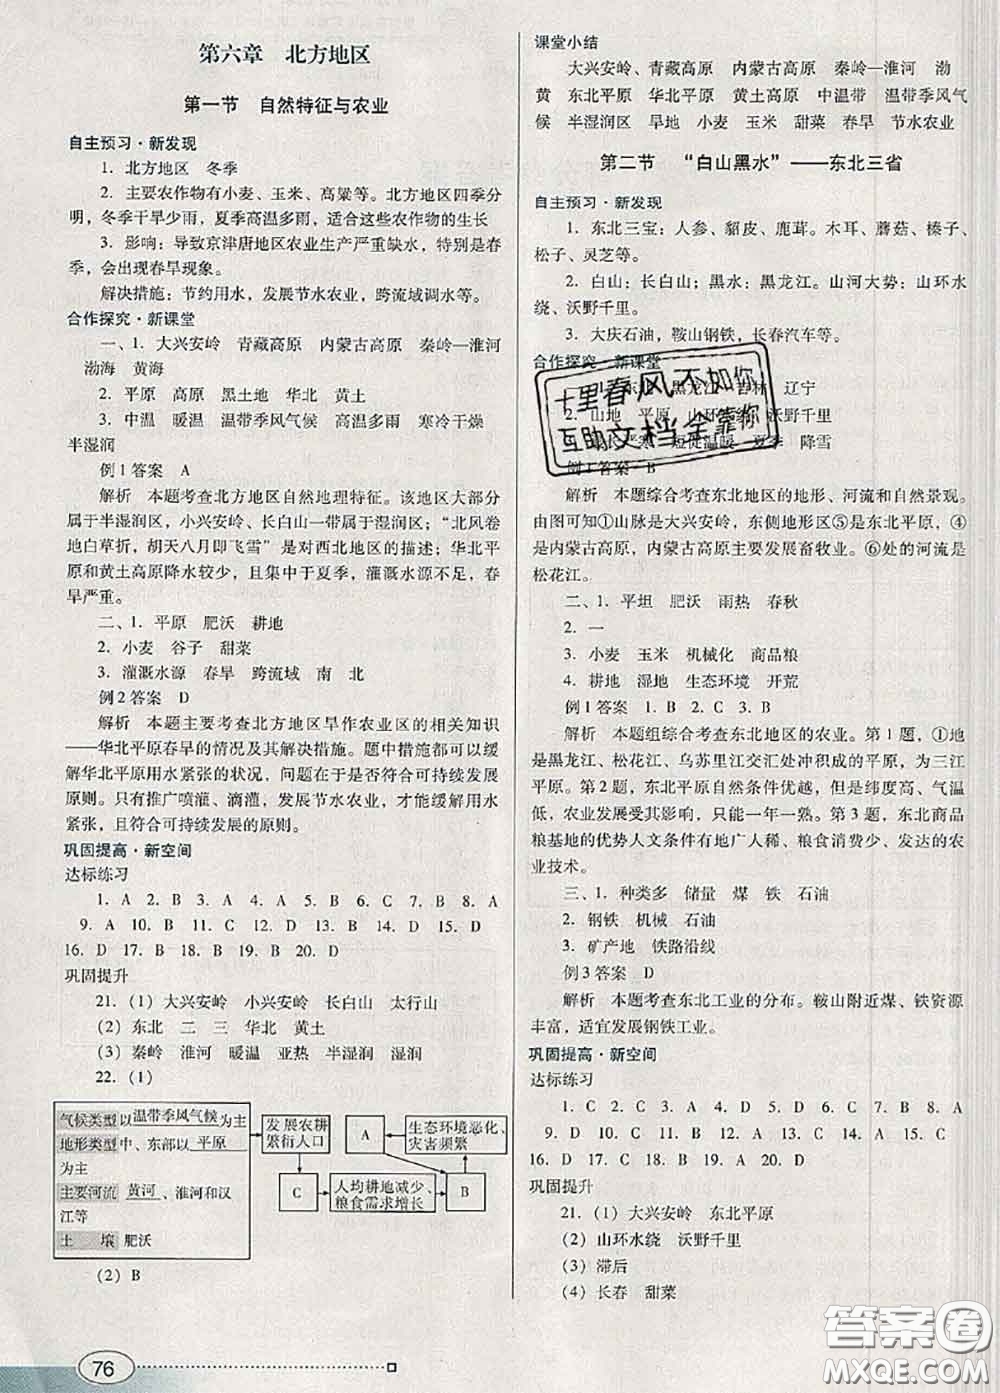 第六章 北方地区
第一节 自然特征与农业
自主预习·新发现
1. 北方地区 冬季
2. 主要农作物有小麦、玉米、高粱等。北方地区四季分
明，冬季干旱少雨，夏季高温多雨，适合这些农作物的生长
3. 影响：导致京津唐地区农业生产严重缺水，特别是春
季，会出现春旱现象。
解决措施：节约用水，发展节水农业，跨流域调水等。
合作探究·新课堂
一、1. 大兴安岭 青藏高原 内蒙古高原 秦岭—淮河
渤海 黄海
2. 平原 高原 黑土地 华北 黄土
3. 中温 暖温 温带季风气候 高温多雨 寒冷干燥
半湿润
例1答案 A
解析 本题考查北方地区自然地理特征。该地区大部
分属于半湿润区，小兴安岭、长白山一带属于湿润区；“北风卷
地白草折，胡天八月即飞雪”是对西北地区的描述；华北平
原和黄土高原降水较少，且集中于夏季，灌溉水源不足，春
旱严重。
二、1. 平原 肥沃 耕地
2. 小麦 谷子 甜菜
3. 灌溉水源 春旱 跨流域 南 北
例2答案 D
解析 本题主要考查北方地区旱作农业区的相关知识
——华北平原春旱的情况及其解决措施。题中措施都可以缓
解华北平原用水紧张的状况，问题在于是否符合可持续发展
原则。只有推广喷灌、滴灌，发展节水农业，才能缓解用水
紧张，且符合可持续发展的原则。
巩固提高·新空间
达标练习
1. A 2. B 3. A 4. A 5. B 6. C 7. B 8. A
9. A 10. B 11. C 12. D 13. B 14. D 15. D
16. D 17. B 18. B 19. B 20. D
巩固提升
21. (1) 大兴安岭 小兴安岭 长白山 太行山
(2) 东北 二 三 华北 黄土
(3) 秦岭 淮河 暖温 亚热 半湿润 湿润
22. (1)
气候类型 以温带季风气候为主
地形类型 中、东部以 平原
为主
主要河流 黄河、淮河和汉
江等
土 壤 肥沃
发展农耕
繁衍人口
A
生态环境恶化、
灾害频繁
C
人均耕地减少、
粮食需求增长
B
(2) B
76
课堂小结
大兴安岭、青藏高原 内蒙古高原 秦岭—淮河 渤
黄 东北平原 华北平原 黄土高原 中温带 温带季风气
候 半湿润区 旱地 小麦 玉米 甜菜 春旱 节水农业
第二节 “白山黑水”——东北三省
自主预习·新发现
1. 东北三宝：人参、貂皮、鹿茸。木耳、蘑菇、榛子、
松子、灵芝等。
2. 白山：长白山；黑水：黑龙江。山河大势：山环水
绕、沃野千里。
3. 大庆石油，鞍山钢铁，长春汽车等。
合作探究·新课堂
黑龙江 吉林 辽宁
2. 山地 平原 山环水绕 沃野千里
严寒 短促温暖 夏季 降雪
例1答案 B
十里春风不如你
互助文档全靠你
解析 本题综合考查东北地区的地形、河流和自然景观。
由图可仿①山脉是大兴安岭，东侧地形区⑤是东北平原，④
是内蒙古高原，内蒙古高原主要发展畜牧业。⑥处的河流是
松花江。
二、1. 平坦 肥沃 雨热 春秋
2. 一
3. 小麦 玉米 机械化 商品粮
4. 耕地 湿地 生态环境 开荒
例1答案 1. B 2. C 3. B
解析 本题组综合考查东北地区的农业。第1题，①地
是黑龙江、松花江、乌苏里江交汇处冲积成的平原，为三江
平原。第2题，东北平原自然条件优越，但是纬度高、气温
低，农业发展受其影响，只能一年一熟。第3题，东北商品
粮基地的优势人文条件有地广人稀、粮食消费少、发达的农
业技术。
三、1. 种类多 储量 煤 铁 石油
2. 钢铁 机械 石油
3. 矿产地 铁路沿线
例3答案 D
解析 本题考查东北工业的分布。鞍山附近煤、铁资源
丰富，适宜发展钢铁工业。
巩固提高·新空间
达标练习
1. C 2. C 3. A 4. C 5. C 6. C 7. B 8. A
9. D 10. C 11. B 12. A 13. C 14. A 15. C
16. D 17. C 18. D 19. A 20. D
巩固提升
21. (1) 大兴安岭 东北平原
(2) 山环水绕 沃野千里
(3) 滞后
(4) 长春 甜菜
答案圈
MXQE.COM